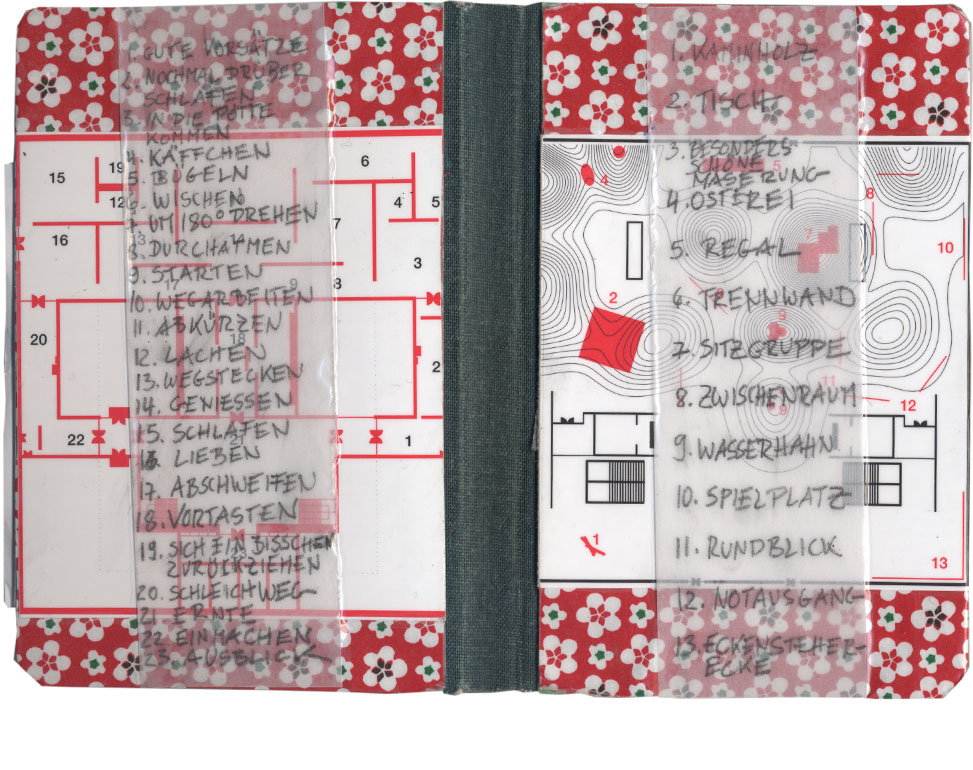 1. GUTE VORSÄTZE
2. NOCHMAL DRÜBER
SCHLAFEN
3. IN DIE PÖTTE
KOMMEN
4. KÄFFCHEN
5. BÜGELN
6. WISCHEN
7. UM 180° DREHEN
8. DURCHATMEN
9. STARTEN
10. WEGARBEITEN
11. ABKÜRZEN
12. LACHEN
13. WEGSTECKEN
14. GENIESSEN
15. SCHLAFEN
16. LIEBEN
17. ABSCHWEIFEN
18. VORTASTEN
19. SICH EIN BISSCHEN
ZURÜCKZIEHEN
20. SCHLEICHWEG
21. ERNTE
22. EINMACHEN
23. AUSBLICK
15
19
12
16
20
22
6
4
5
7
3
8
9
13
14
17
18
2
1
1. KAMINHOLZ
2. TISCH
3. BESONDERS
SCHÖNE
MASERUNG
4. OSTEREI
5. REGAL
6. TRENNWAND
7. SITZGRUPPE
8. ZWISCHENRAUM
9. WASSERHAHN
10. SPIELPLATZ
11. RUNDBLICK
12. NOTAUSGANG
13. ECKENSTEHER-
ECKE
4
5
8
7
10
2
9
11
12
9
1
13